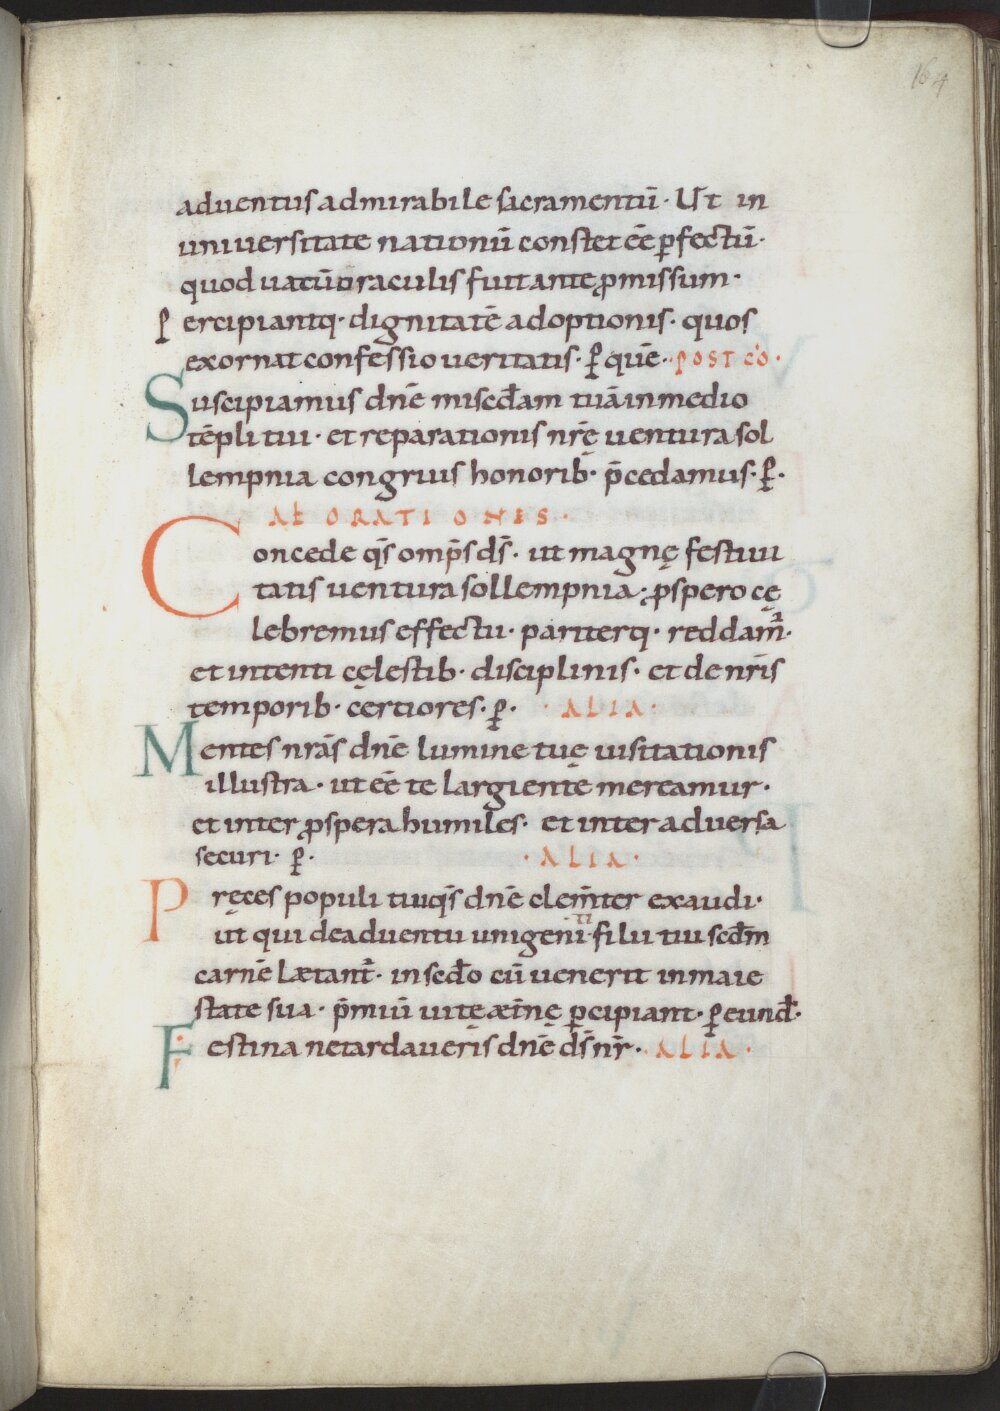 164
aduentus admirabile sacramentū · Ut in
uniuersitate nationū constet eē ꝑfectū ·
quod uatū oraculis fuit ante ꝓmissum ·
Percipiantq· dignitatē adoptionis · quos
exornat confessio ueritatis · ꝑ quē · POST CO ·
Suscipiamus dn̄e misc̄dam tuā in medio
tēpli tui · et reparationis nr̄ę uentura sol
lempnia congruis honorib· p̄cedamus · ꝑ ·
AŁ ORATIONES ·
Concede qs̄ omp̄s ds̄ · ut magnę festiui
tatis uentura sollempnia · ꝓspero cę
lebremus effectu · pariterq· reddam̄ ·
et intenti cęlestib· disciplinis · et de nr̄is
temporib· certiores · ꝑ · · ALIA ·
Mentes nrās dn̄e lumine tuę uisitationis
illustra · ut eē te largiente mereamur ·
et inter ꝓspera humiles · et inter aduersa
securi · ꝑ · · ALIA ·
Pręces populi tui qs̄ dn̄e clem̄ter exaudi ·
ut qui de aduentu unigeni ti filii tui scd̄m
carnē lætant̄ · in scd̄o cū uenerit in maie
state sua · p̄miū uitę æt̄nę ꝑcipiant · ꝑ eund̄ ·
Festina ne tardaueris dn̄e ds̄ nr̄ · ALIA ·